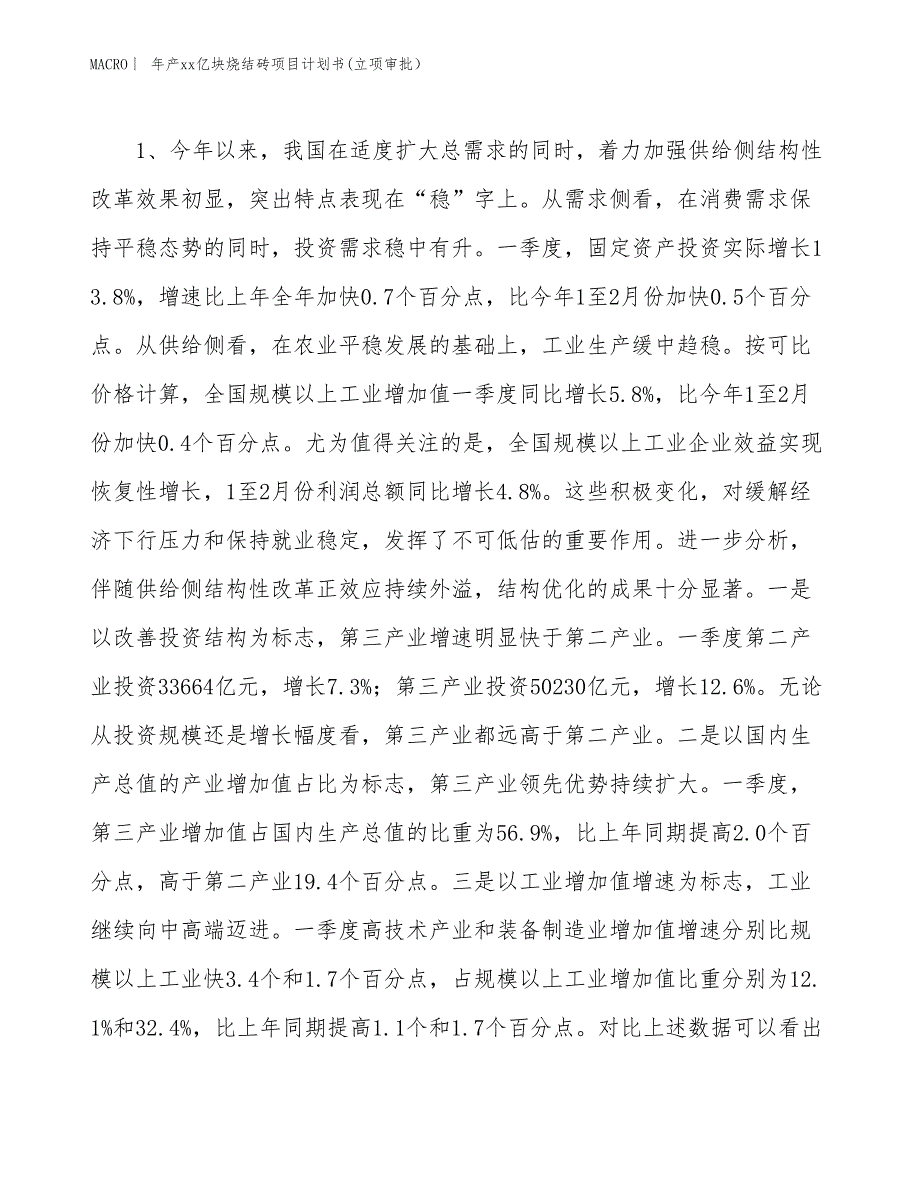 MACRO| 年产xx亿块烧结砖项目计划书(立项审批）
1、今年以来，我国在适度扩大总需求的同时，着力加强供给侧结构性
改革效果初显，突出特点表现在“稳”字上。从需求侧看，在消费需求保
持平稳态势的同时，投资需求稳中有升。一季度，固定资产投资实际增长1
3.8%，增速比上年全年加快0.7个百分点，比今年1至2月份加快0.5个百分
点。从供给侧看，在农业平稳发展的基础上，工业生产缓中趋稳。按可比
价格计算，全国规模以上工业增加值一季度同比增长5.8%，比今年1至2月
份加快0.4个百分点。尤为值得关注的是，全国规模以上工业企业效益实现
恢复性增长，1至2月份利润总额同比增长4.8%。这些积极变化，对缓解经
济下行压力和保持就业稳定，发挥了不可低估的重要作用。进一步分析，
伴随供给侧结构性改革正效应持续外溢，结构优化的成果十分显著。一是
以改善投资结构为标志，第三产业增速明显快于第二产业。一季度第二产
业投资33664亿元，增长7.3%；第三产业投资50230亿元，增长12.6%。无论
从投资规模还是增长幅度看，第三产业都远高于第二产业。二是以国内生
产总值的产业增加值占比为标志，第三产业领先优势持续扩大。一季度，
第三产业增加值占国内生产总值的比重为56.9%，比上年同期提高2.0个百
分点，高于第二产业19.4个百分点。三是以工业增加值增速为标志，工业
继续向中高端迈进。一季度高技术产业和装备制造业增加值增速分别比规
模以上工业快3.4个和1.7个百分点，占规模以上工业增加值比重分别为12.
1%和32.4%，比上年同期提高1.1个和1.7个百分点。对比上述数据可以看出